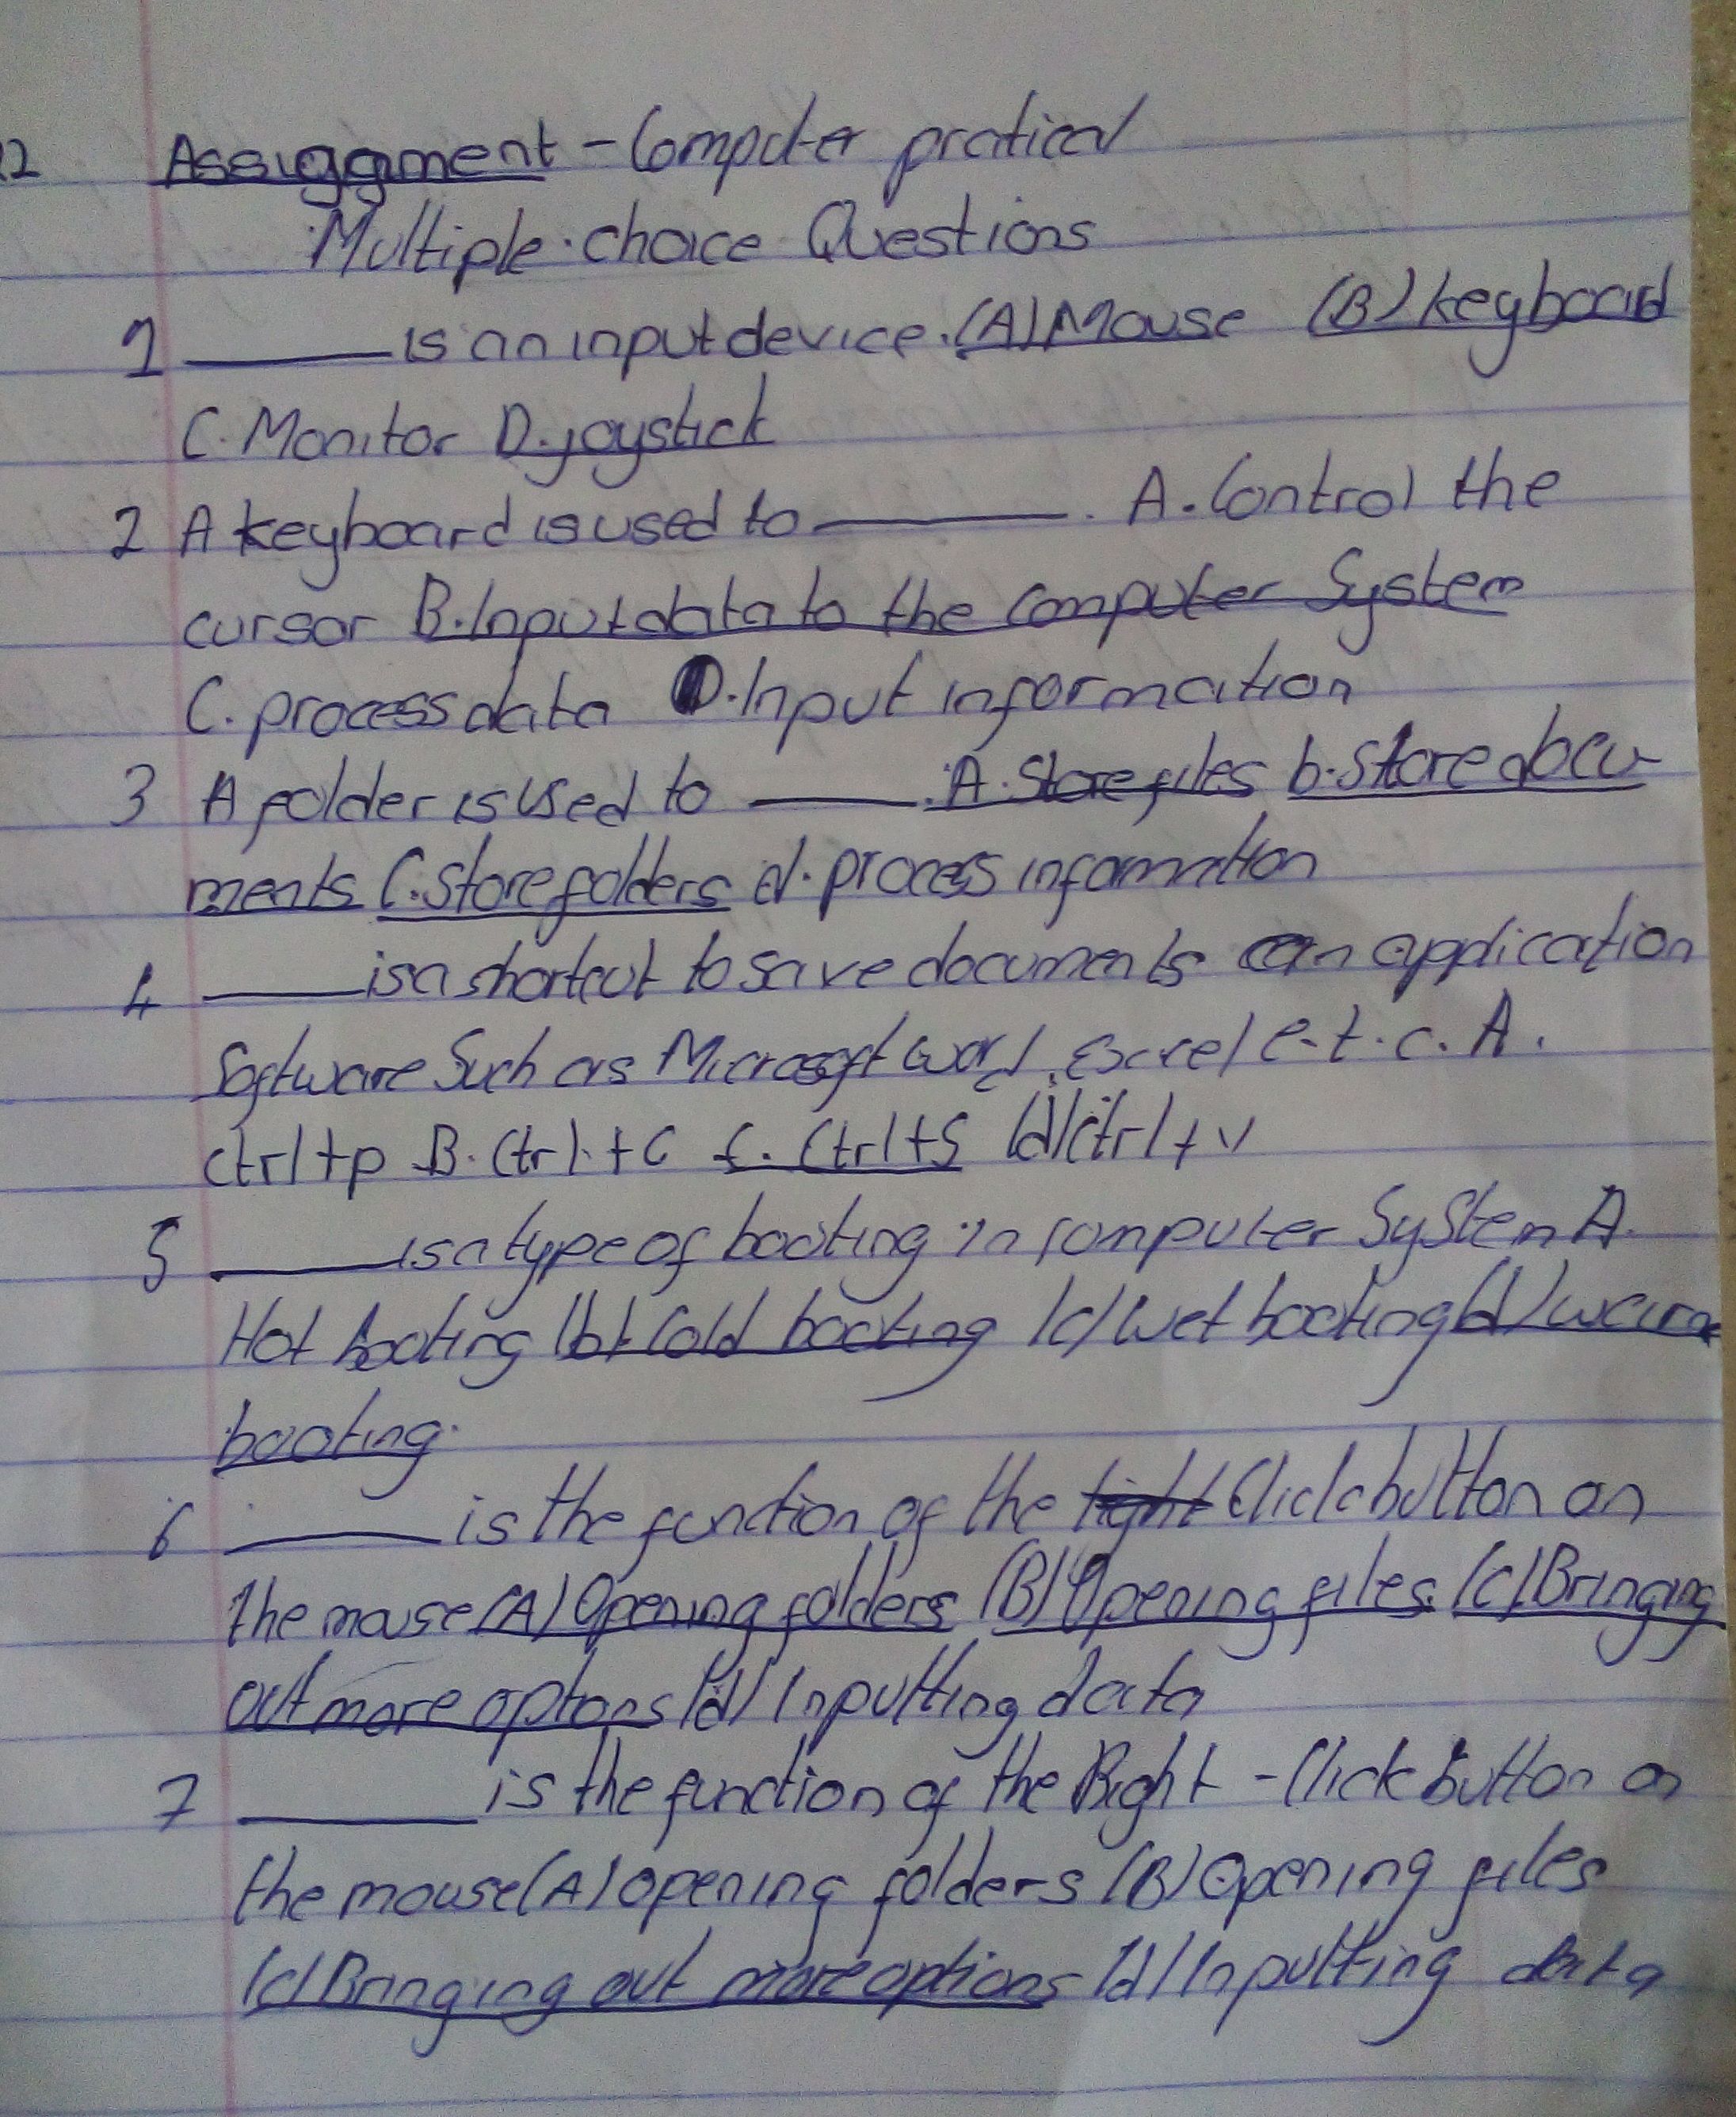 22 Assiggament - Computer pratical
Multiple choice Questions
1 ____ is an input device. (A) Mouse (B) keyboard
C. Monitor D. joystick
2 A keyboard is used to ____. A. Control the
cursor B. Input data to the computer System
C. process data D. Input information
3 A folder is Used to ____. A. Store files b. Store docu-
ments C. Store folders d. process information
4 ____ is a shortcut to save documents on application
Software Such as Microsoft word, Excel e.t.c. A.
ctrl+p B. Ctrl+C C. Ctrl+S (d) Ctrl+v
5 ____ is a type of booting in computer System A.
Hot booting (b) Cold booting (c) Wet booting (d) warm
booting.
6 ____ is the function of the Click button on
the mouse (A) Opening folders (B) Opening files (C) Bringing
out more options (d) Inputting data
7 ____ is the function of the Right - Click button on
the mouse (A) opening folders (B) Opening files
(c) Bringing out more options (d) Inputting data